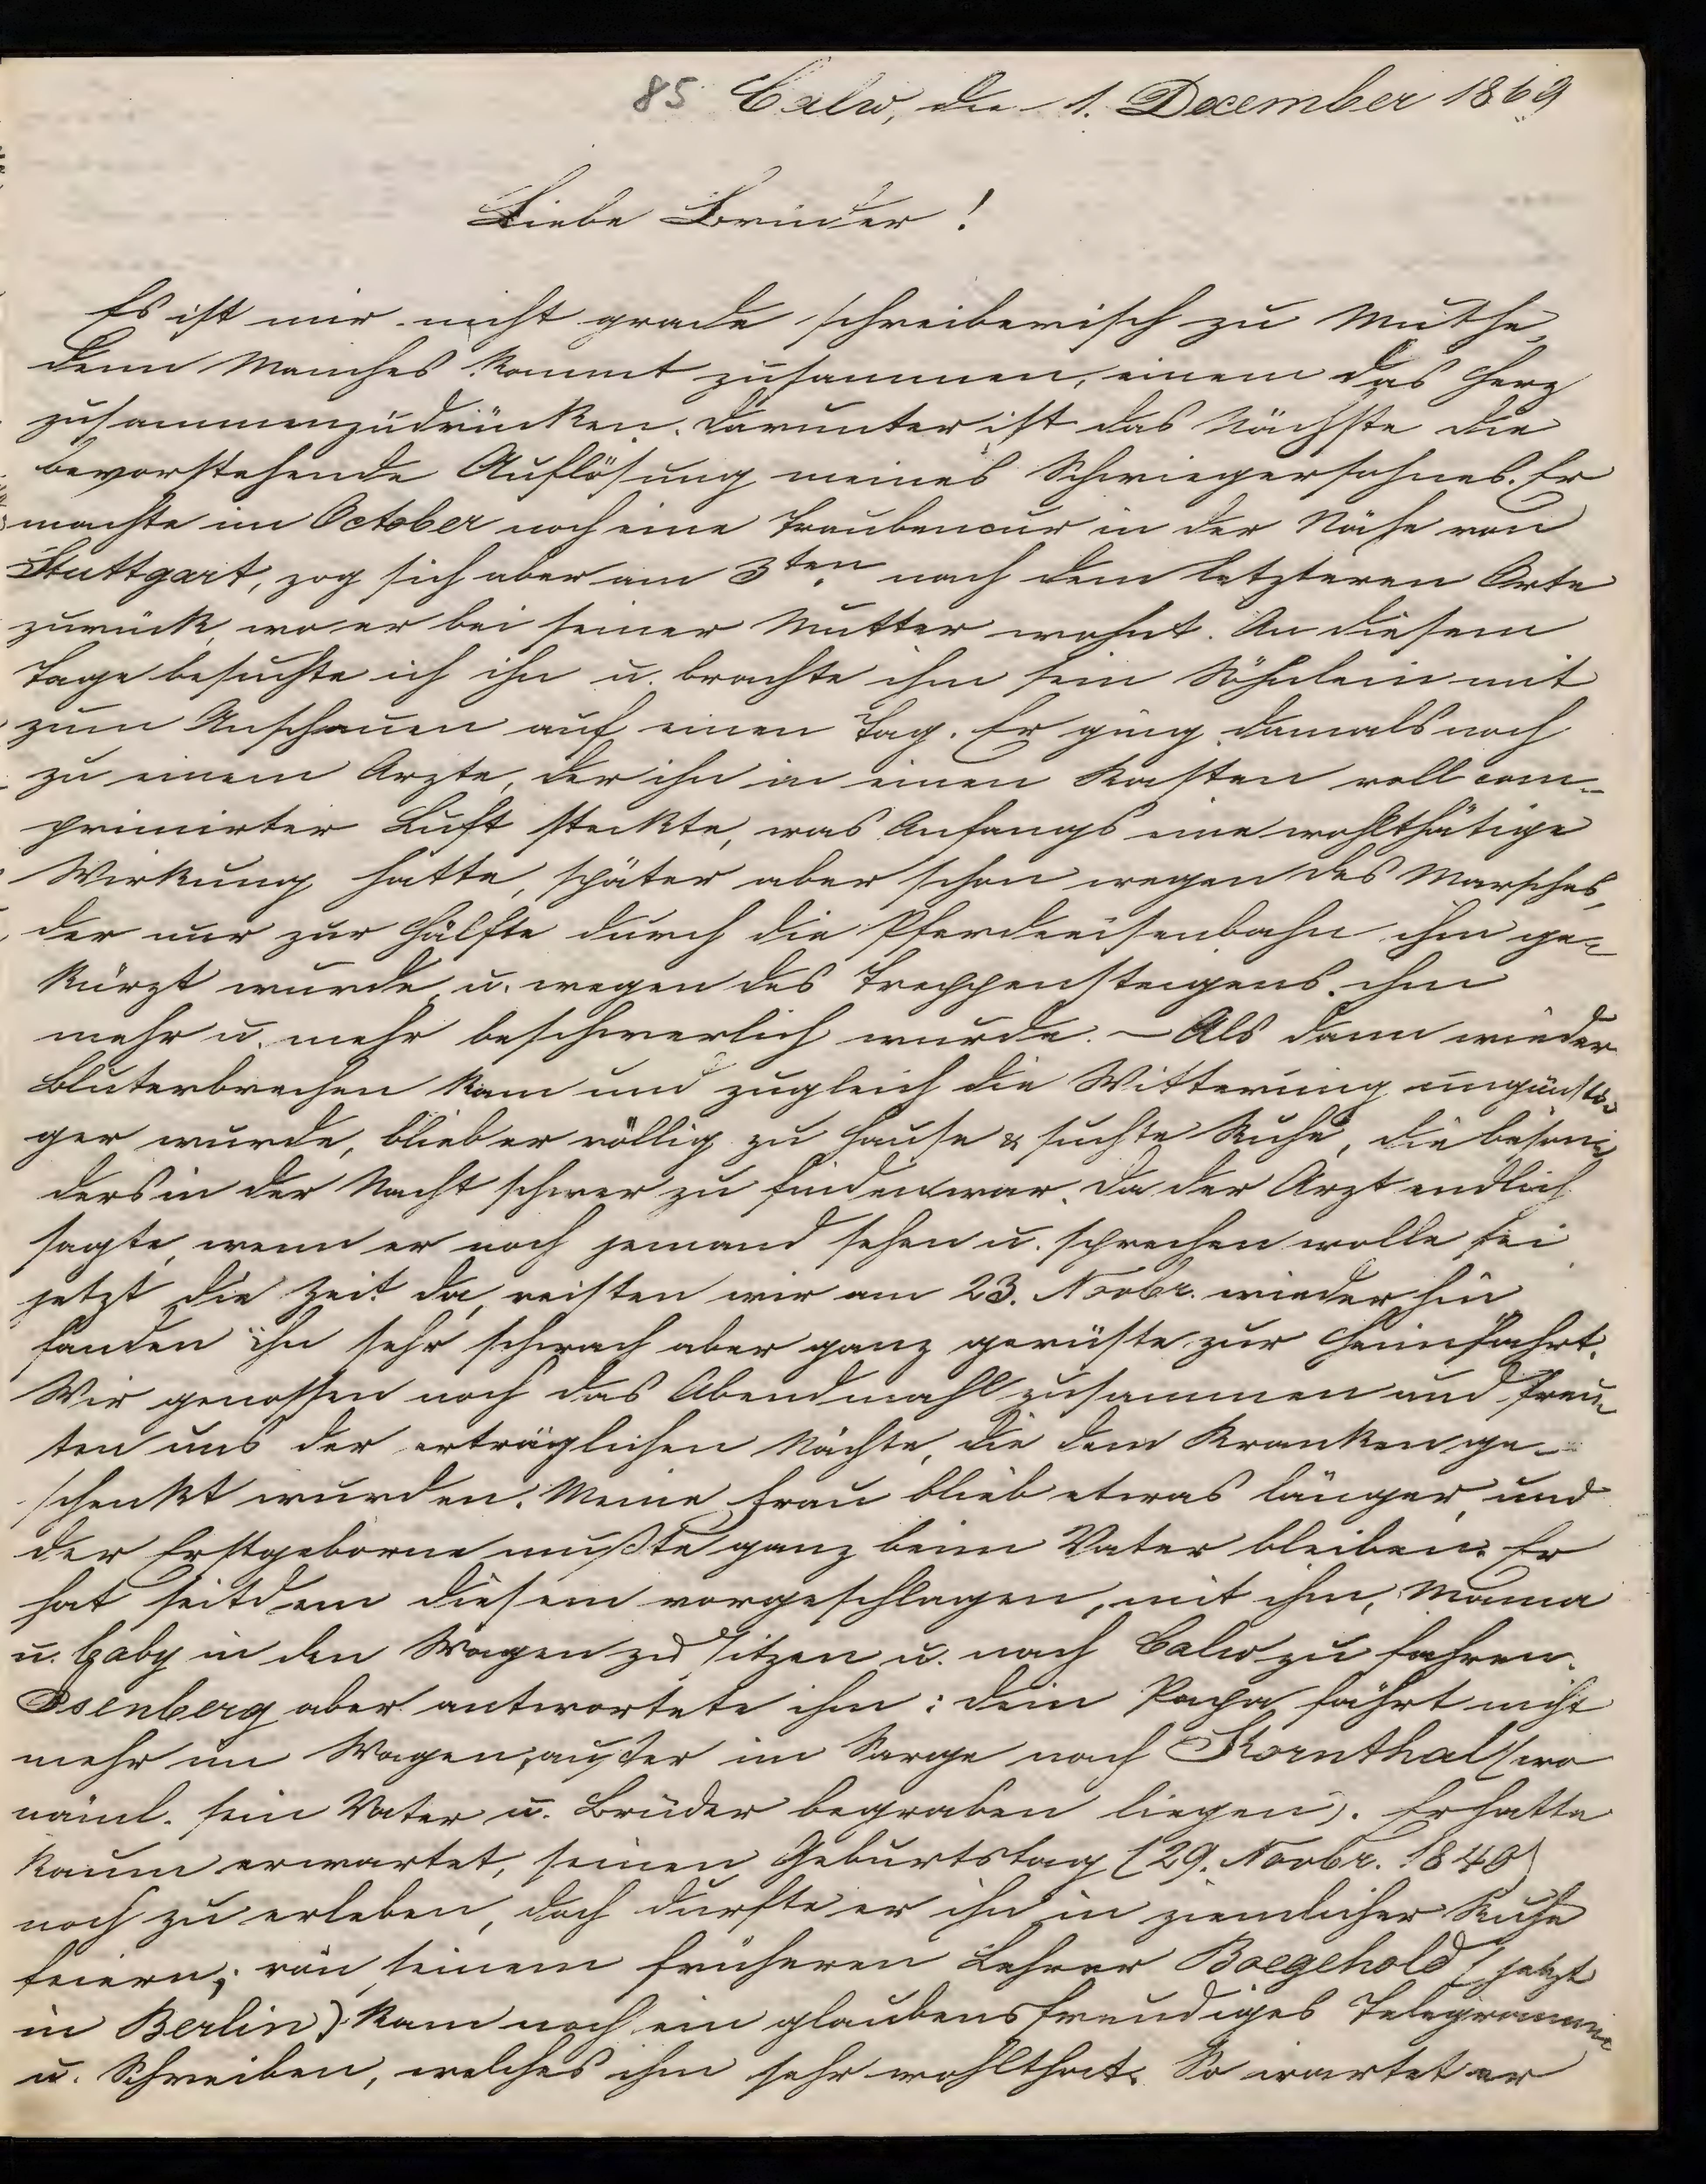 85 Calw, den 1. December 1869
Liebe Brüder!
Es ist mir nicht grade schreiberisch zu Muthe,
denn Manches kommt zusammen, einem das Herz
zusammenzudrücken. Darunter ist das Nächste die
bevorstehende Auflösung meines Schwiegersohnes. Er
machte im October noch eine Traubencur in der Nähe von
Stuttgart, zog sich aber am 3ten nach dem letzteren Orte
zurück, wo er bei seiner Mutter wohnt. An diesem
Tage besuchte ich ihn u. brachte ihm sein Söhnlein mit
zum Anschauen auf einen Tag. Er ging damals noch
zu einem Arzte, der ihn in einen Kasten voll com-
primirter Luft steckte, was Anfangs eine wohlthätige
Wirkung hatte, später aber schon wegen des Marsches,
der nur zur Hälfte durch die Pferdeeisenbahn ihm ge-
kürzt wurde u. wegen des Treppensteigens ihm
mehr u. mehr beschwerlich wurde. – Als dann wieder
Bluterbrechen kam und zugleich die Witterung ungünsti-
ger wurde, blieb er völlig zu Hause & suchte Ruhe, die beson-
ders in der Nacht schwer zu finden war. Da der Arzt endlich
sagte, wenn er noch jemand sehen u. sprechen wolle sei
jetzt die Zeit da, reisten wir am 23. Novbr. wieder hin
fanden ihn sehr schwach aber ganz gerüste zur Heimfahrt.
Wir genossen noch das Abendmahl zusammen und freu-
ten uns der erträglichen Nächte, die dem Kranken ge-
schenkt wurden. Meine Frau blieb etwas länger, und
der Erstgeborne mußte ganz beim Vater bleiben. Er
hat seitdem diesem vorgeschlagen, mit ihm, Mama
u. Gaby in den Wagen zu sitzen u. nach Calw zu fahren.
Isenberg aber antwortete ihm: dein Papa fährt nicht
mehr im Wagen, außer im Sarge nach Kornthal (wo
näml. sein Vater u. Brüder begraben liegen). Er hatte
kaum erwartet, seinen Geburtstag (29. Novbr. 1840)
noch zu erleben, doch durfte er ihn in ziemlicher Ruhe
feiern; von seinem früheren Lehrer Boegehold (jetzt
in Berlin) kam noch ein glaubensfreudiges Telegramm
u. Schreiben, welches ihm sehr wohlthat. So wartet er